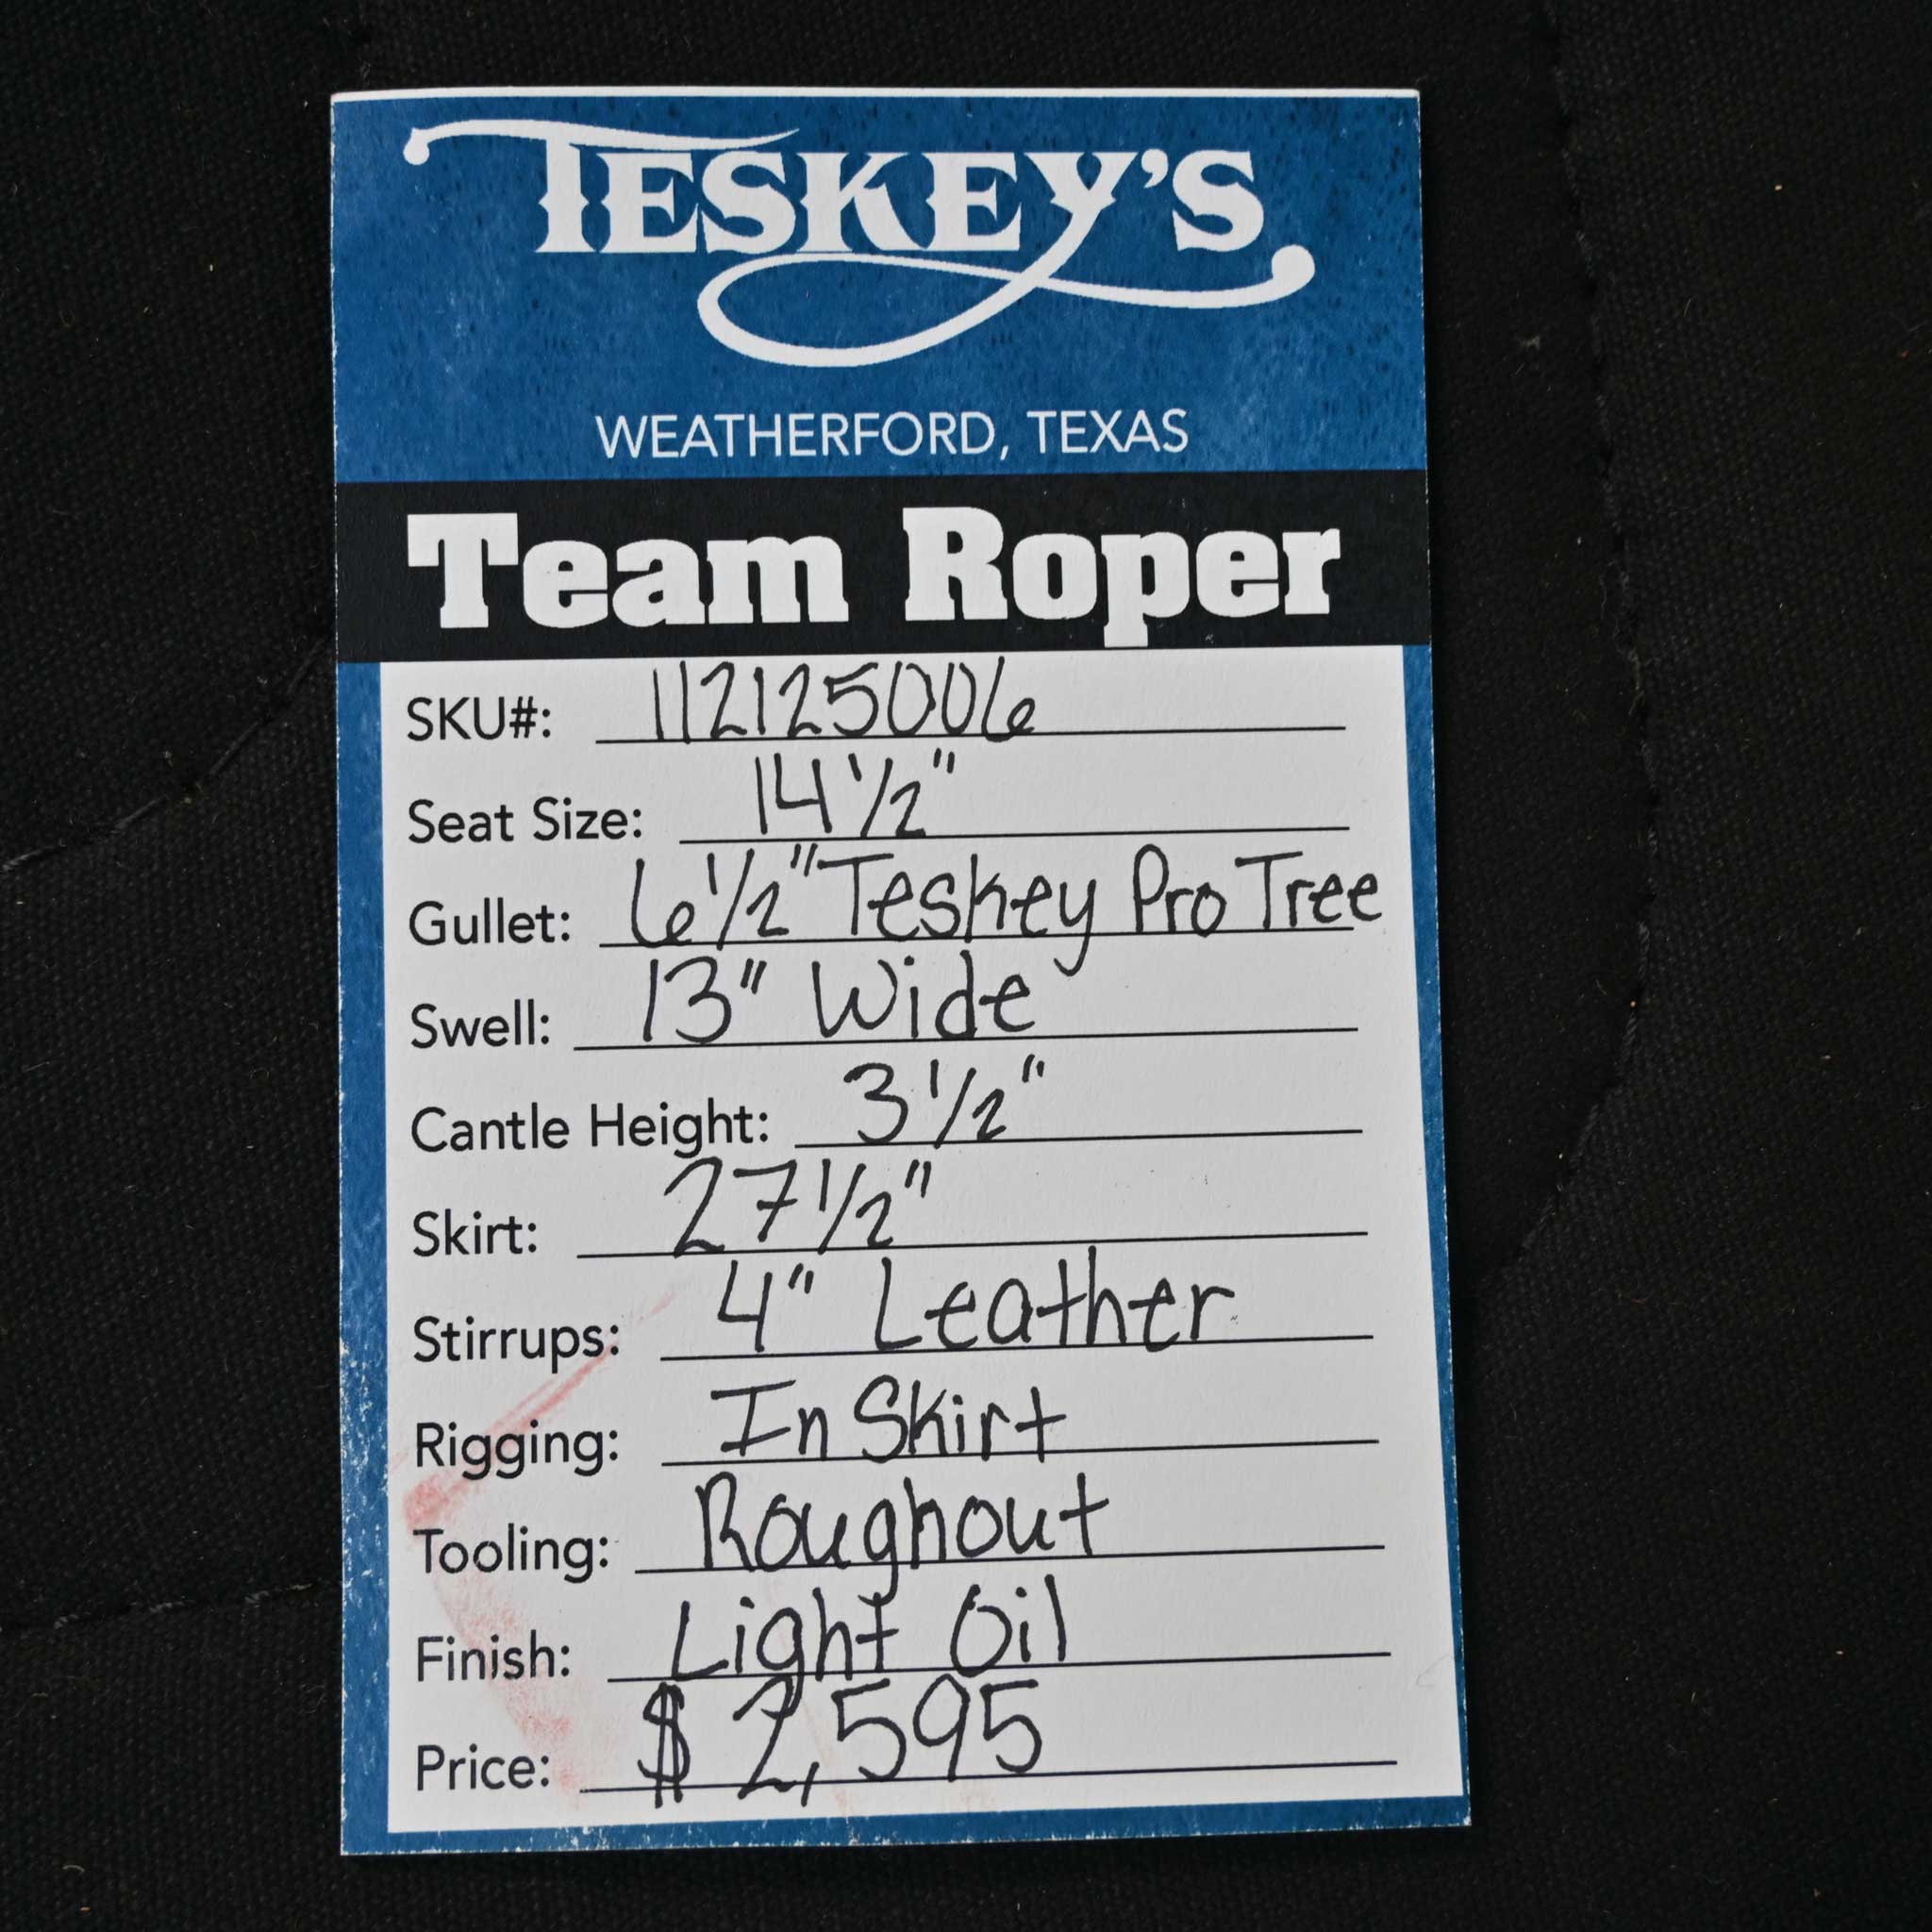 TESKEY'S
WEATHERFORD, TEXAS
Team Roper
SKU#: 112125006
Seat Size: 14 1/2"
Gullet: 6 1/2" Teskey Pro Tree
Swell: 13" Wide
Cantle Height: 3 1/2"
Skirt: 27 1/2"
Stirrups: 4" Leather
Rigging: In Skirt
Tooling: Roughout
Finish: Light Oil
Price: $ 2,595